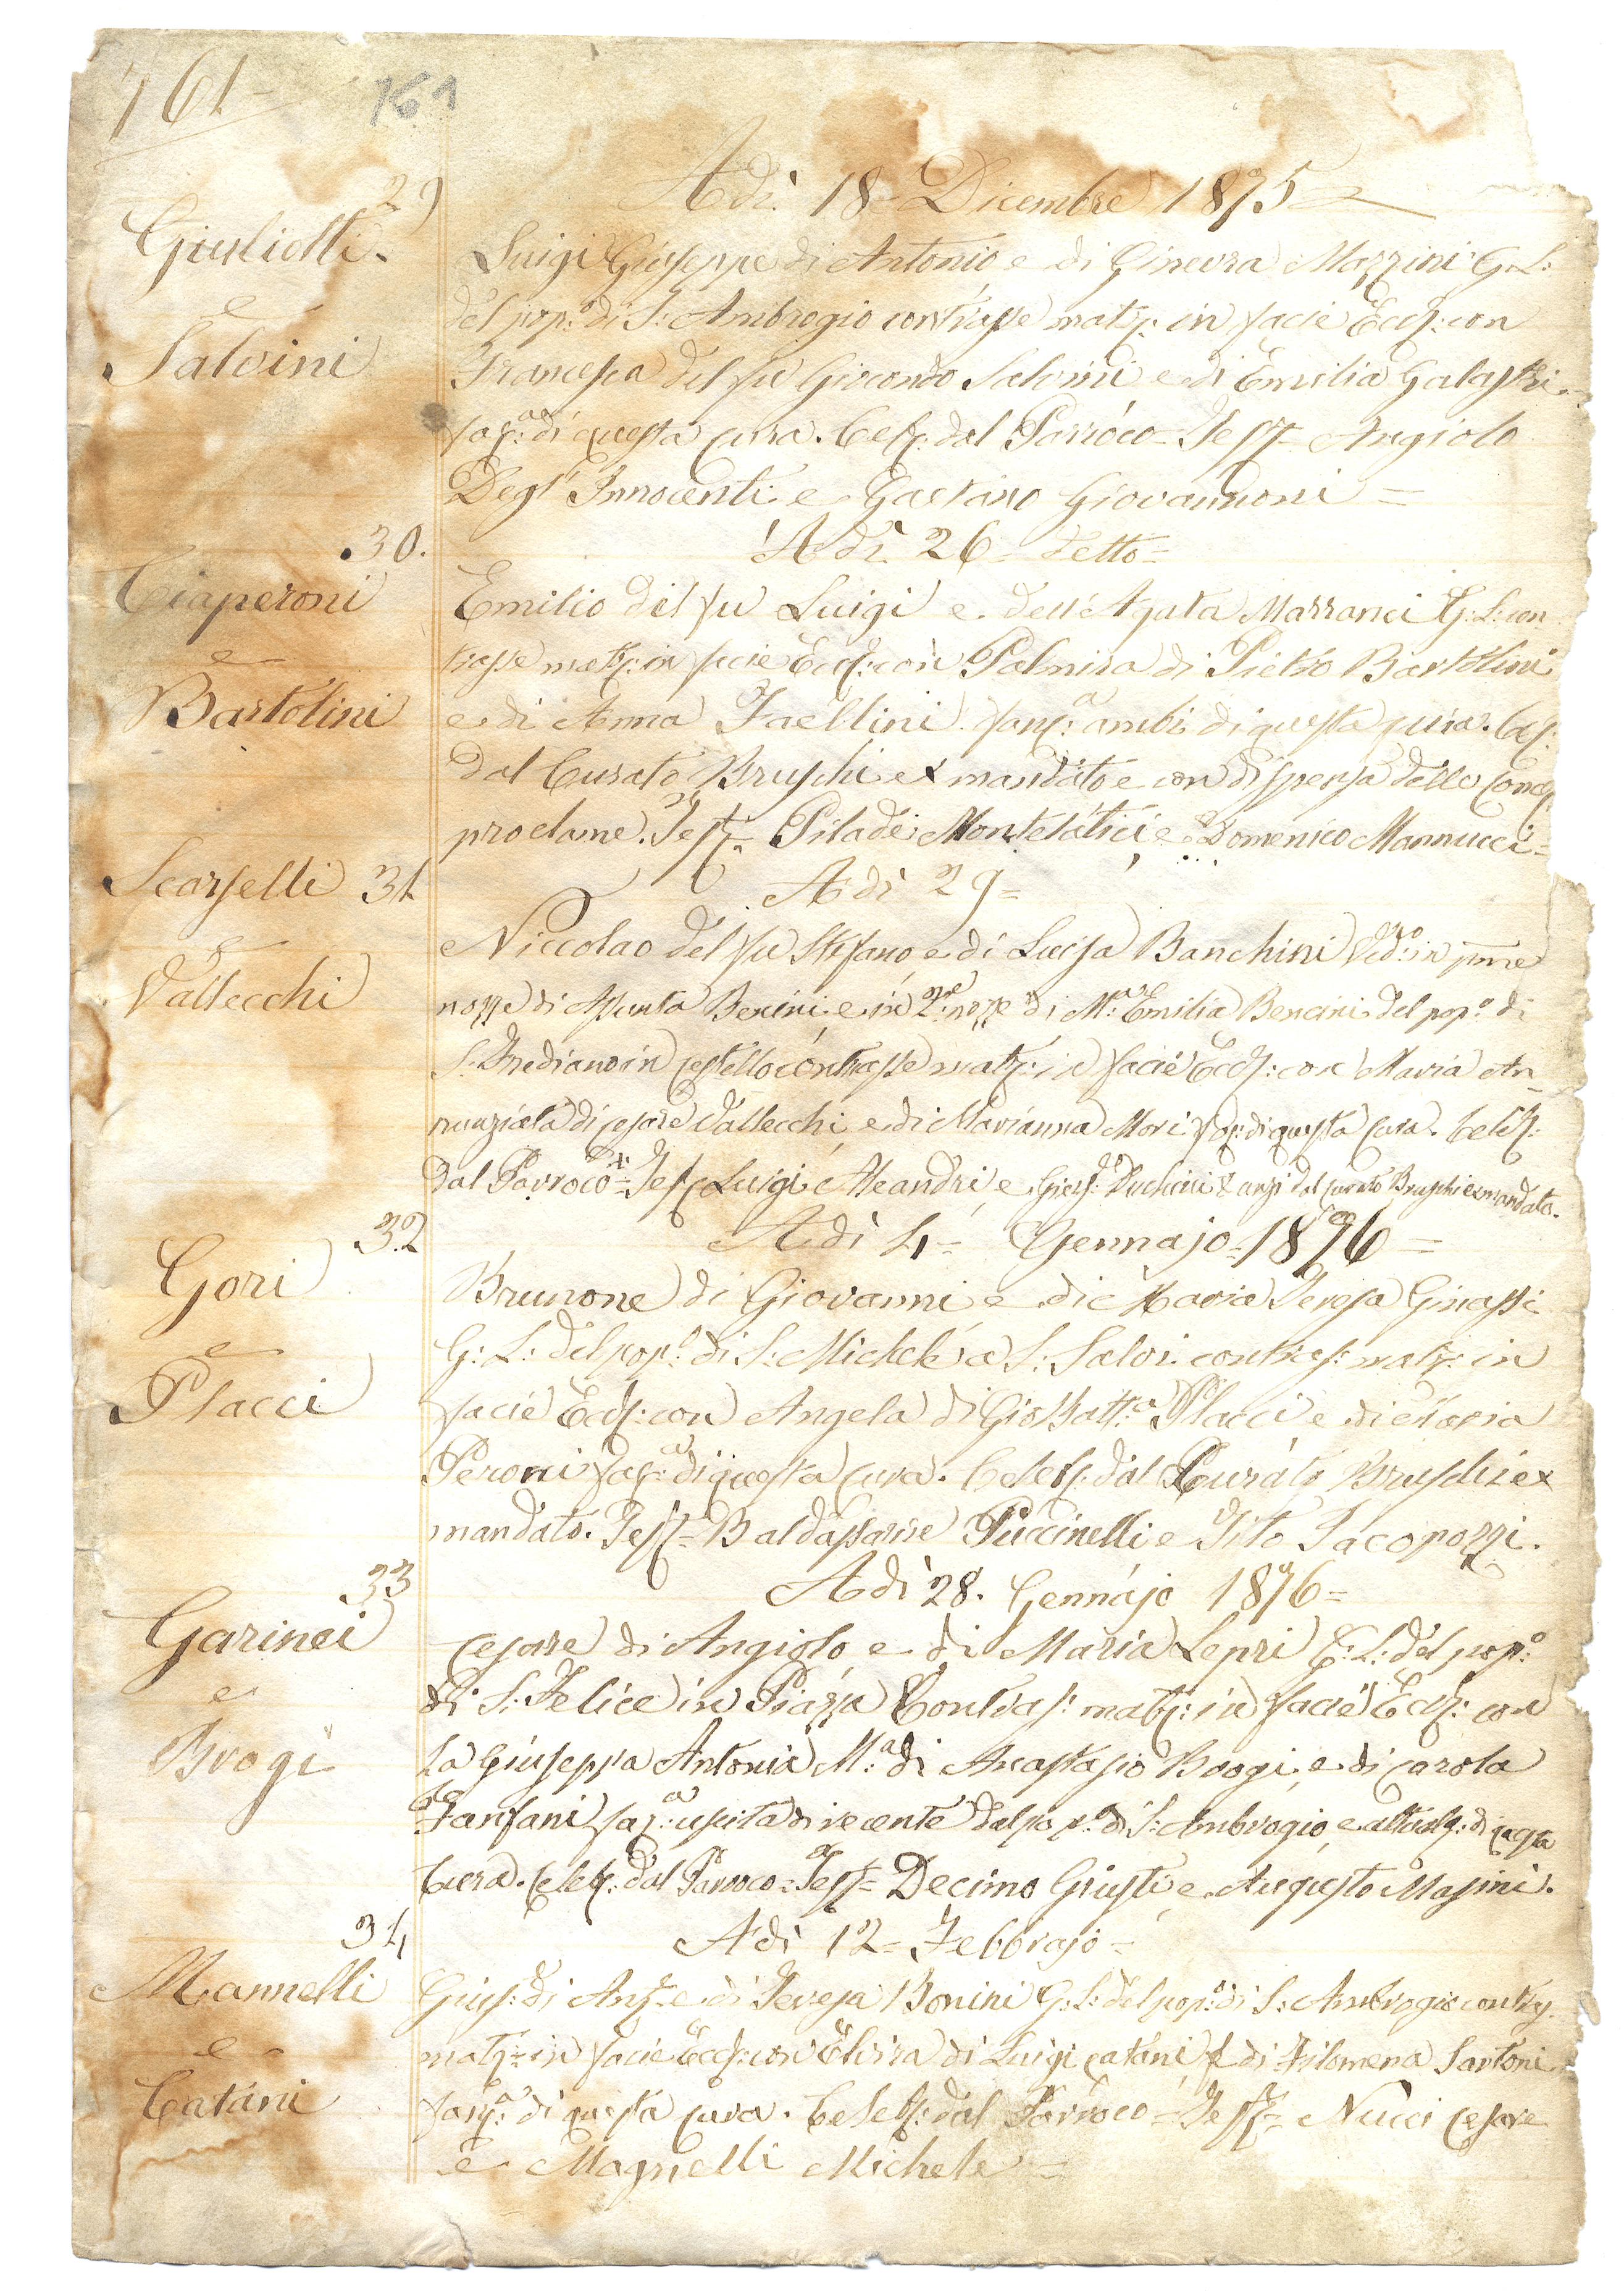 161
161
29
Adì 18 Dicembre 1875
Giulietti
e
Salvini
Luigi Giuseppe di Antonio e di Ginevra Mazzini G. L:
del pop.o di S: Ambrogio contrasse matr: in facie Eccl: con
Francesca del fu Giocondo Salvini e di Emilia Galastri
fan: di questa cura. Cel: dal Parroco = Test Angiolo
Degl' Innocenti e Gaetano Giovannoni =
30.
Adì 26 detto =
Ciaperoni
e
Bartolini
Emilio del fu Luigi e dell'Agata Marranci G: L: con
trasse matr: in facie Eccl: con Palmira di Pietro Bartolini
e di Anna Faellini fanc.a ambi di questa cura. Cel:
dal Curato Bruschi ex mandato e con dispensa delle
proclame. Test = Pilade Montelatici e Domenico Mannucci =
31
Adì 29 =
Scarselli
e
Vallecchi
Niccolao del fu Stefano e di Luisa Banchini Ved.o in pme
nozze di Assunta Bencini e in 2.e nozze di M.a Emilia Bencini del pop.o di
S. Frediano in Cestello contrasse matr: in facie Eccl: con Maria An
nunziata di Cesare Vallecchi e di Marianna Mori fan: di questa cura. Cel:
dal Parroco = Test Luigi Aleandri e Gius: anzi dal curato Bruschi ex mandato.
32
Adì 4 = Gennajo = 1876 =
Gori
e
Placci
Brunone di Giovanni e di Maria Teresa Ginassi
G: L: del pop.o di S: Michele a S: Salvi contras: matr: in
facie Eccl: con Angela di Gio Batt.a Placci e di Maria
Peroni fan: di questa cura. Celeb: dal Curato Bruschi ex
mandato. Test = Baldassarre Puccinelli e Tito Jacopozzi.
33
Adì 28. Gennajo 1876 =
Garinei
e
Brogi
Cesare di Angiolo e di Maria Lepri G: L: del pop.o
di S: Felice in Piazza Contras: matr: in facie Eccl: con
la Giuseppa Antonia M.a di Anastasio Brogi e di Carola
Fanfani fan: uscita di recente dal pop.o di S: Ambrogio, e di questa
Cura. Celeb: dal Parroco = Test = Decimo Giusti e Augusto Masini.
34
Adì 12 = Febbrajo =
Mannelli
e
Catani
Gius: di Ang: e di Teresa Bonini G: L: del pop.o di S: Ambrogio contr:
matr: in facie Eccl: con Elvira di Luigi Catani e di Filomena Sartoni
fanc.a di questa cura. Celeb: dal Parroco = Test = Nucci Cesare
e Magnelli Michele =